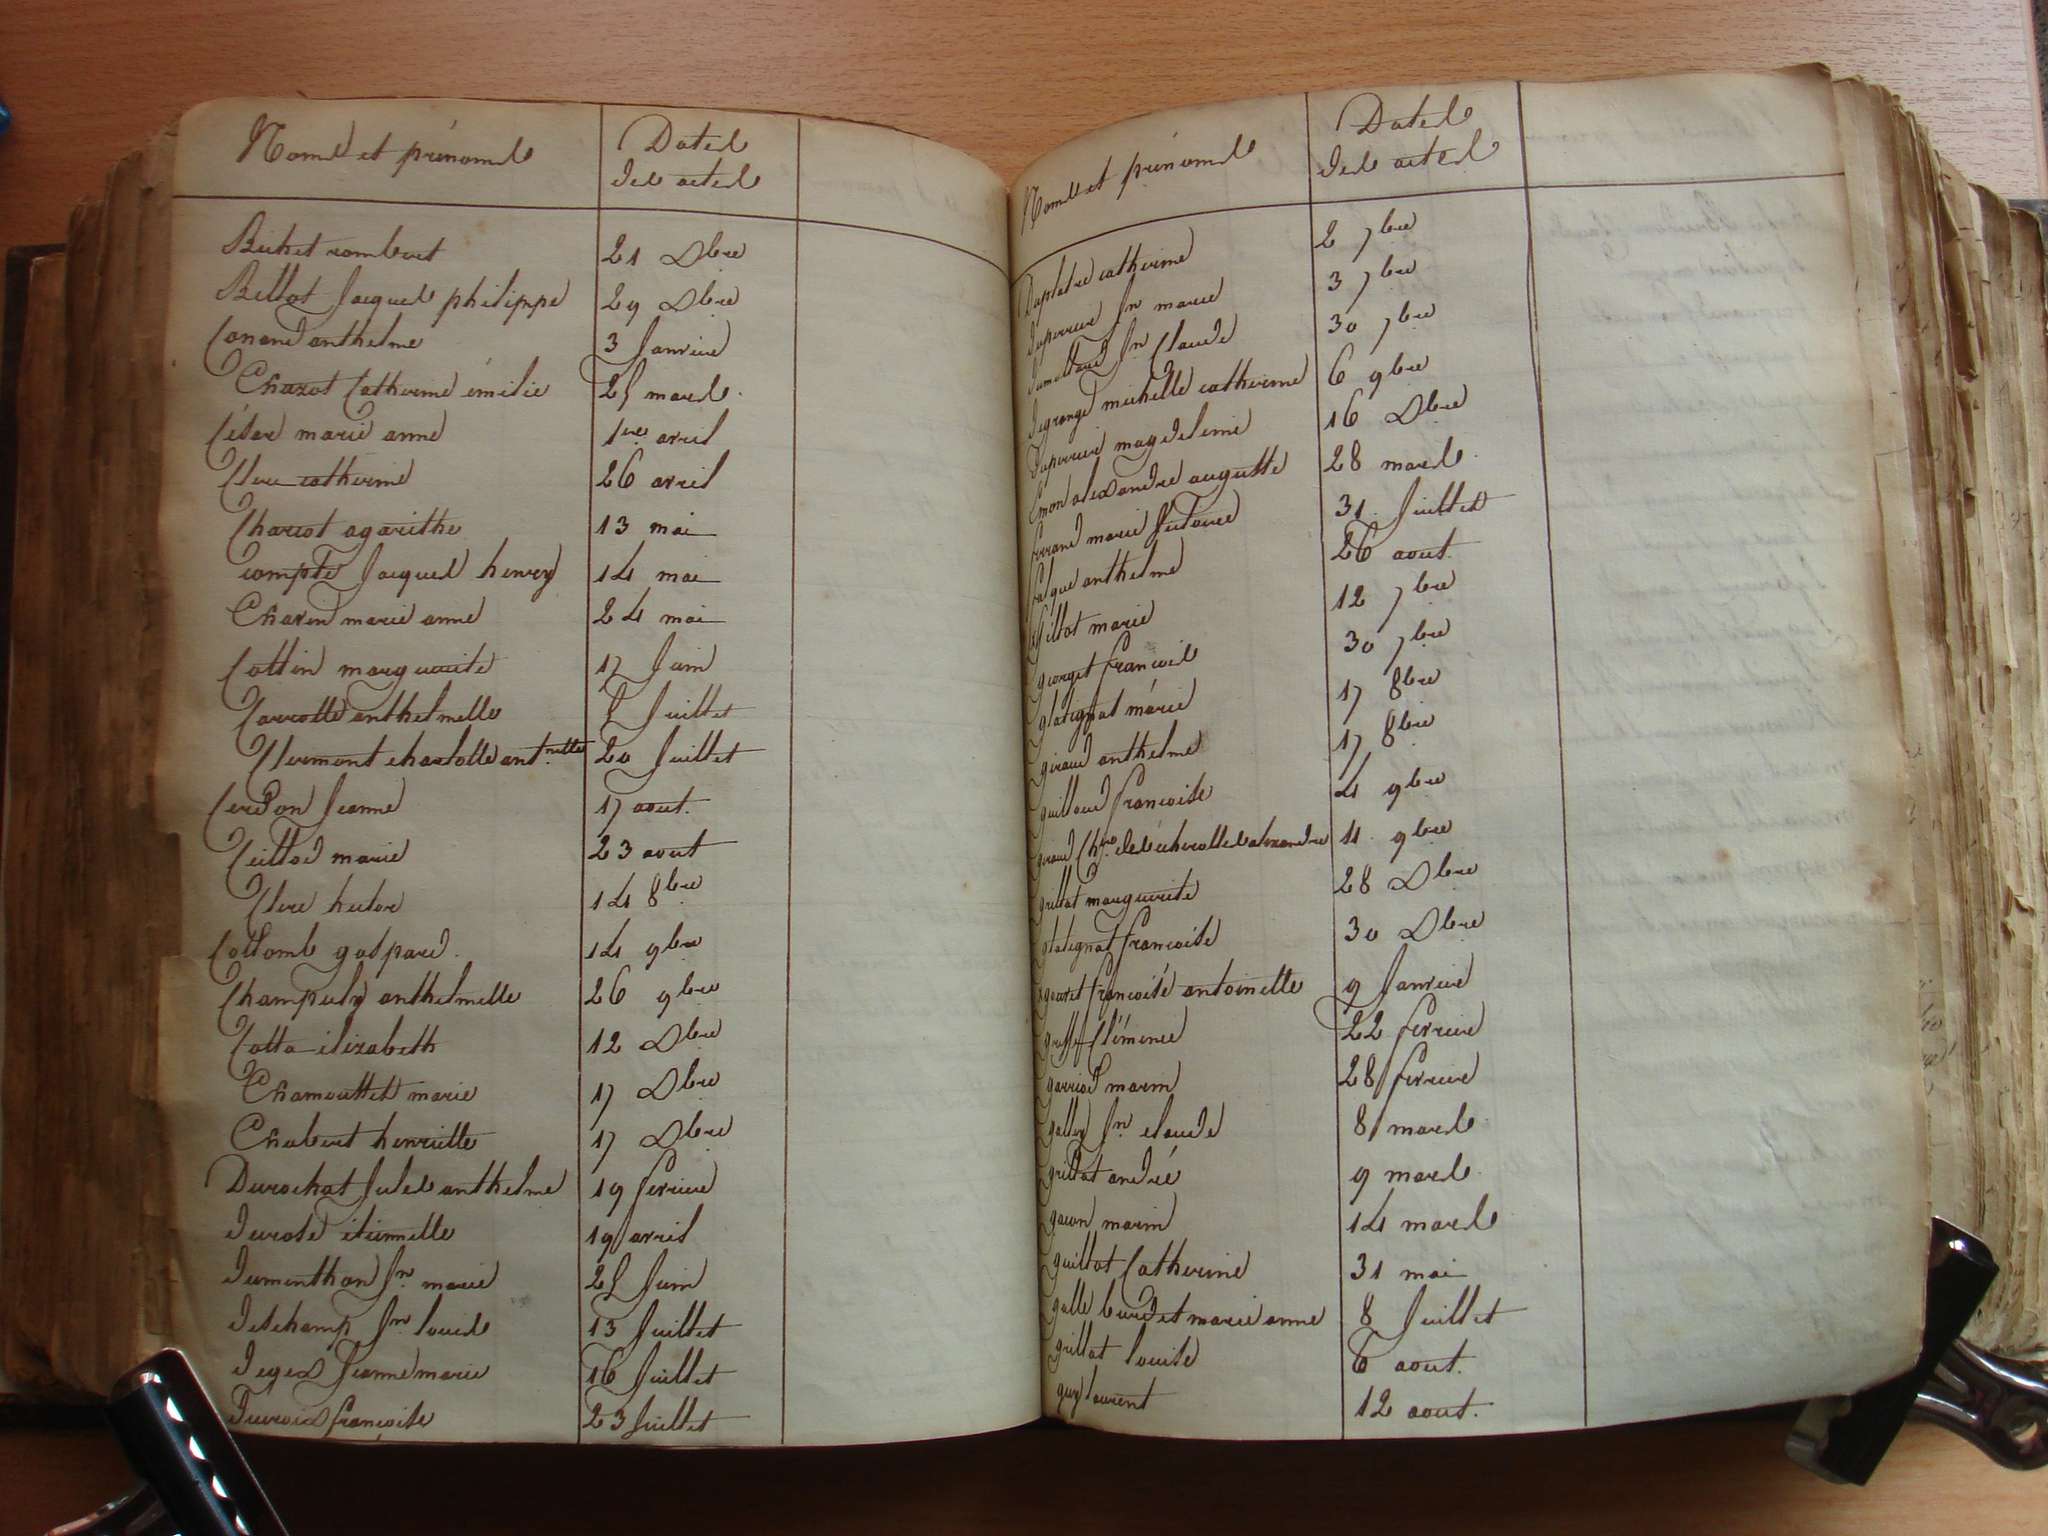 Noms et prénoms
Dates
des actes
Bichet rambert 21 Dbre
Billot Jacques philippe 29 Dbre
Conand anthelme 3 Janvier
Chazot Catherine émilie 25 mars
César marie anne 1er avril
Clerc catherine 26 avril
Charcot agarithe 13 mai
compte Jacques henry 14 mai
Chavin marie anne 24 mai
Cottin marguerite 17 Juin
Carrotte anthelmette 5 Juillet
Clermont charlotte ant.nette 20 Juillet
Cerdon Jeanne 17 aout.
Cuillod marie 23 aout
Clerc hector 14 8bre
Collomb gaspard. 14 9bre
Champuly anthelmette 26 9bre
Cotta elizabeth 12 Dbre
Chamouttet marie 17 Dbre
Chabert henriette 17 Dbre
Durochat Jules anthelme 19 fevrier
Durost étiennette 19 avril
Dumenthon Jn marie 25 Juin
Deschamp Jn louis 13 Juillet
Deged Jeanne marie 16 Juillet
françoise 23 Juillet
Noms et prénoms
Dates
des actes
Duplatre catherine 2 7bre
Duperrier Jn marie 3 7bre
Jn Claude 30 7bre
Degrange michelle catherine 6 9bre
Duperrier magdeleine 16 Dbre
Emon alexandre auguste 28 mars.
ferrand marie 31 Juillet
falque anthelme 26 aout.
fillot marie 12 7bre
georget francois 30 7bre
glatignat marie 17 8bre
giraud anthelme 17 8bre
guillaud francoise 4 9bre
giraud Ch. des écherolles alexandre 11 9bre
grillat marguerite 28 Dbre
glatignat francoise 30 Dbre
gouret francoise antoinette 9 Janvier
Clémence 22 fevrier
garriod marin 28 fevrier
galley Jn claude 8 mars
grillat andré 9 mars.
gacon marin 14 mars
guillot Catherine 31 mai
galle burdet marie anne 8 Juillet
grillat louise 6 aout.
guy laurent 12 aout.